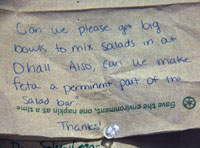 Can we please get big
bowls to mix salads in at
Dhall. Also, can we make
feta a perminent part of the
"Salad bar"
Save the environment, one napkin at a time
Thanks!